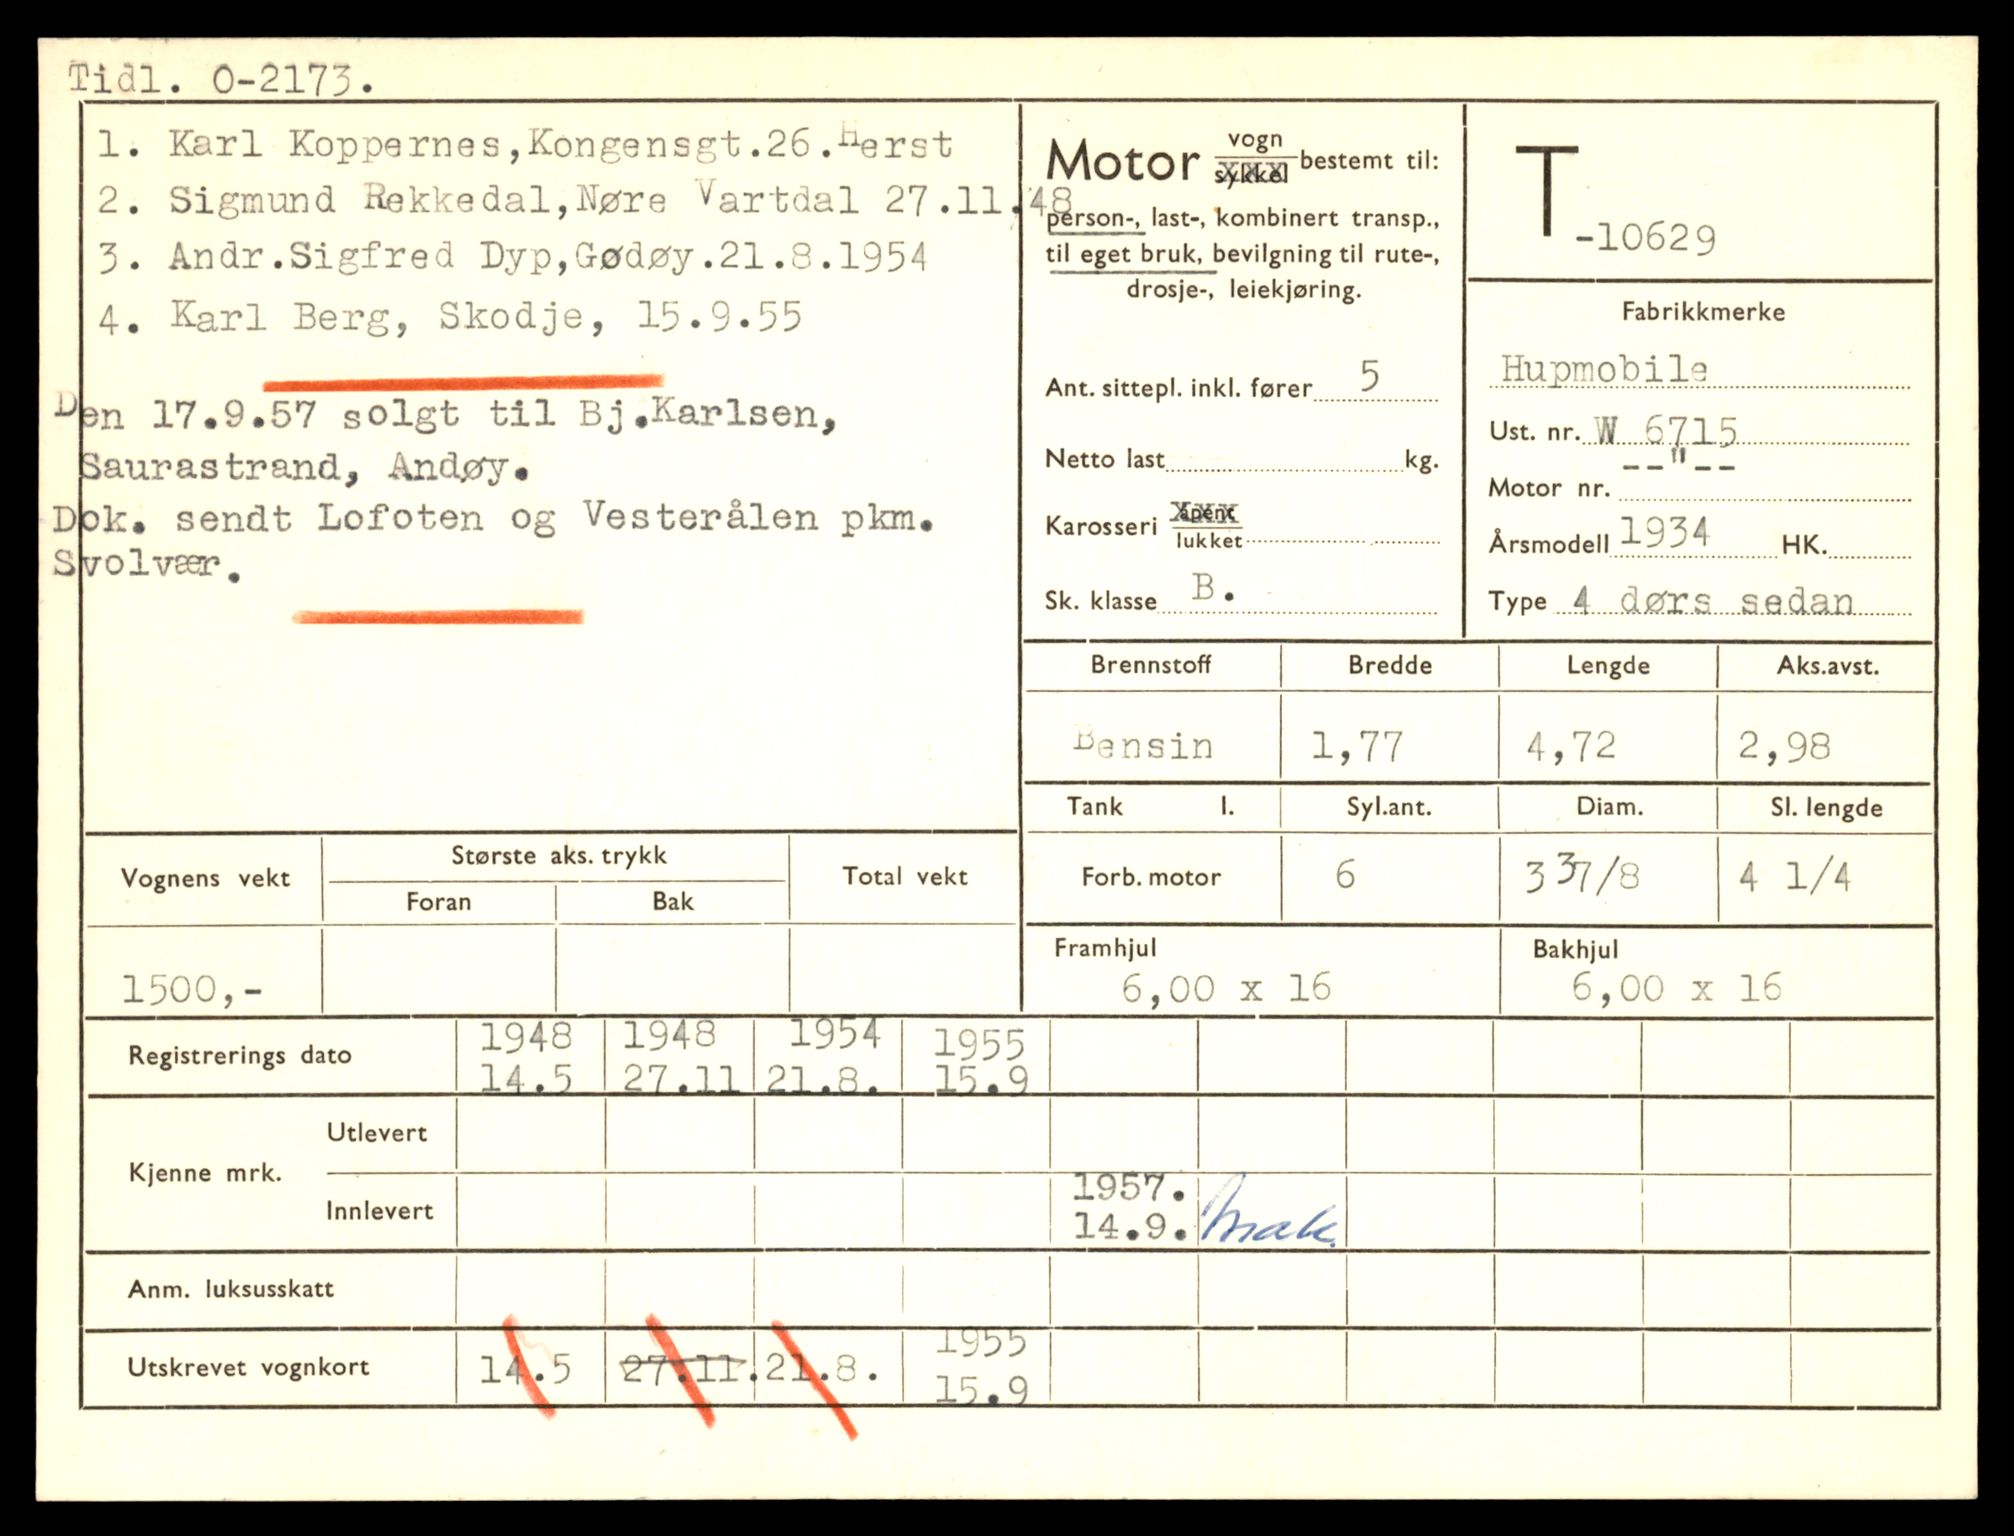 Tidl. O-2173.
1. Karl Koppernes,Kongensgt.26.Herst
2. Sigmund Rekkedal,Nøre Vartdal 27.11.48
3. Andr.Sigfred Dyp,Gødøy.21.8.1954
4. Karl Berg, Skodje, 15.9.55
Den 17.9.57 solgt til Bj.Karlsen,
Saurastrand, Andøy.
Dok. sendt Lofoten og Vesterålen pkm.
Svolvær.
Motor vogn sykkel bestemt til:
person-, last-, kombinert transp.,
til eget bruk, bevilgning til rute-,
drosje-, leiekjøring.
Ant. sittepl. inkl. fører 5
Netto last kg.
Karosseri åpent lukket
Sk. klasse B.
T-10629
Fabrikkmerke
Hupmobile
Ust. nr. W 6715
Motor nr. --"--
Årsmodell 1934 HK.
Type 4 dørs sedan
Brennstoff Bredde Lengde Aks.avst.
Bensin 1,77 4,72 2,98
Tank l. Syl.ant. Diam. Sl. lengde
Forb. motor 6 3 37/8 4 1/4
Framhjul Bakhjul
6,00 x 16 6,00 x 16
Vognens vekt Største aks. trykk Total vekt
Foran Bak
1500,-
Registrerings dato 1948 1948 1954 1955
14.5 27.11 21.8. 15.9
Kjenne mrk. Utlevert
Innlevert 1957.
14.9.
Anm. luksusskatt
Utskrevet vognkort 14.5 27.11. 21.8. 1955
15.9